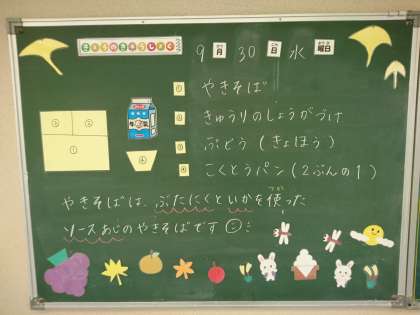 きょうのきゅうしょく
9月30日水曜日
① やきそば
② きゅうりのしょうがづけ
③ ぶどう(きょほう)
④ こくとうパン(2ぶんの1)
③ ②
①
④
やきそばは、ぶたにくといかを使った
ソースあじのやきそばです